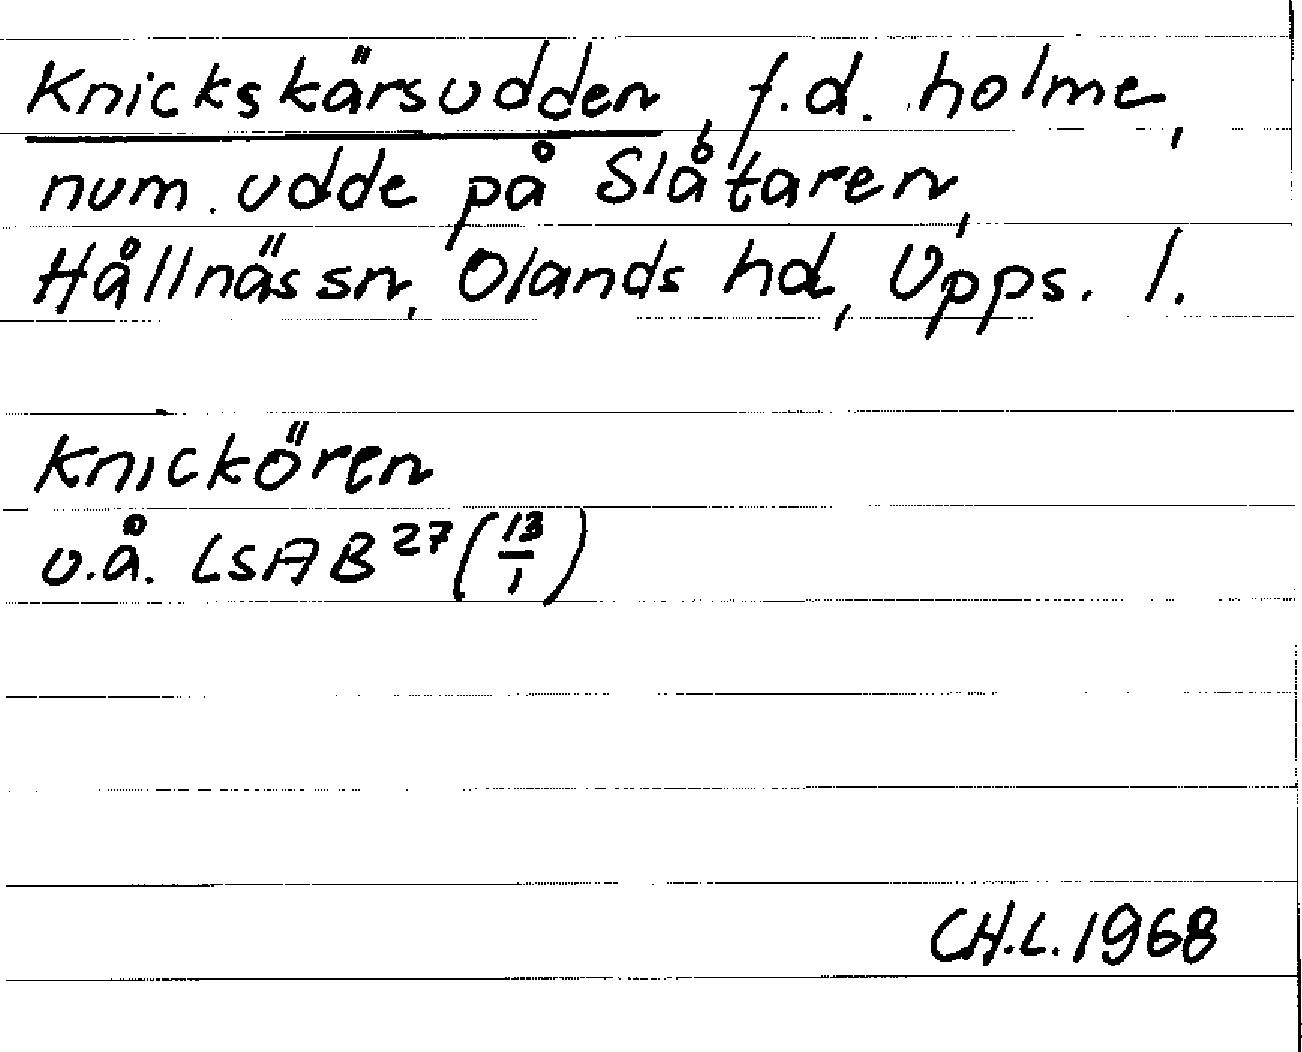 Knickskärsudden, f.d. holme,
num. udde på Slåtaren,
Hållnäs sn, Olands hd, Upps. l.
Knickören
u.å. LSA B 27 (13/1)
CH.L. 1968